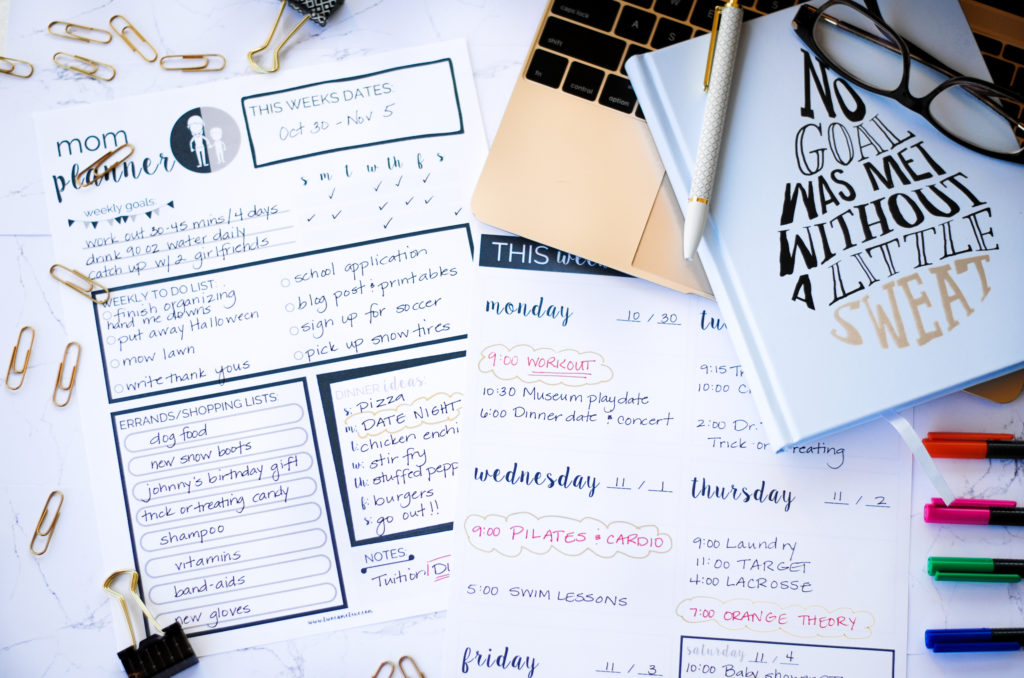 mom
planner
THIS WEEKS DATES:
Oct 30 - Nov 5
s m t w th f s
weekly goals
work out 30-45 mins/4 days
drink 90 oz water daily
catch up w/ 2 girlfriends
WEEKLY TO DO LIST:
finish organizing
hand me downs
put away Halloween
mow lawn
write thank yous
school application
blog post & printables
sign up for soccer
pick up snow tires
ERRANDS/SHOPPING LISTS:
dog food
new snow boots
johnny's birthday gift
trick or treating candy
shampoo
vitamins
band-aids
new gloves
DINNER ideas:
s: pizza
m: DATE NIGHT
t: chicken enchi
w: stir fry
th: stuffed pepp
f: burgers
s: go out!!
NOTES:
Tuition/DI
THIS wee
monday 10 / 30
9:00 WORKOUT
10:30 Museum playdate
6:00 Dinner date & concert
tu
9:15 T
10:00 C
2:00 Dr.
Trick-or-treating
wednesday 11 / 1
9:00 PILATES & CARDIO
5:00 SWIM LESSONS
thursday 11 / 2
9:00 Laundry
11:00 TARGET
4:00 LACROSSE
7:00 ORANGE THEORY
friday 11 / 3
saturday 11 / 4
10:00 Baby show
NO
GOAL
WAS MET
WITHOUT
A LITTLE
SWEAT
caps lock
A
S
shift
Z
X
fn
control
option